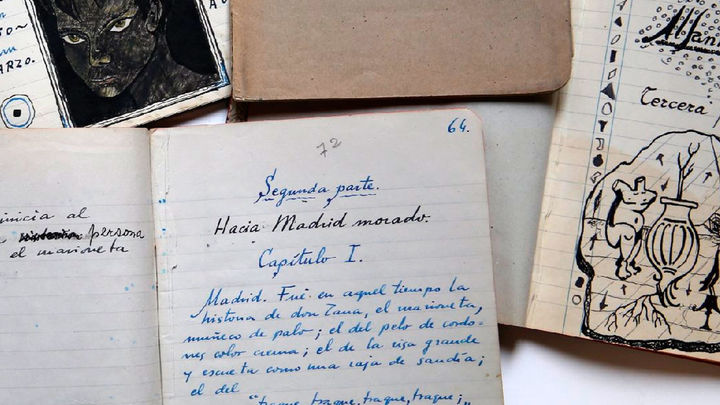 ARZO.
inicia al
persona
el marioneta
72
64.
Segunda parte.
Hacia Madrid morado.
Capítulo I.
Madrid. Fué en aquel tiempo la
historia de don Zana, el marioneta,
muñeco de palo; el del pelo de cordo-
nes color crema; el de la risa grande
y escueta como una raja de sandía;
el del
"traque, traque, traque, traque;
Alfan
Tercera